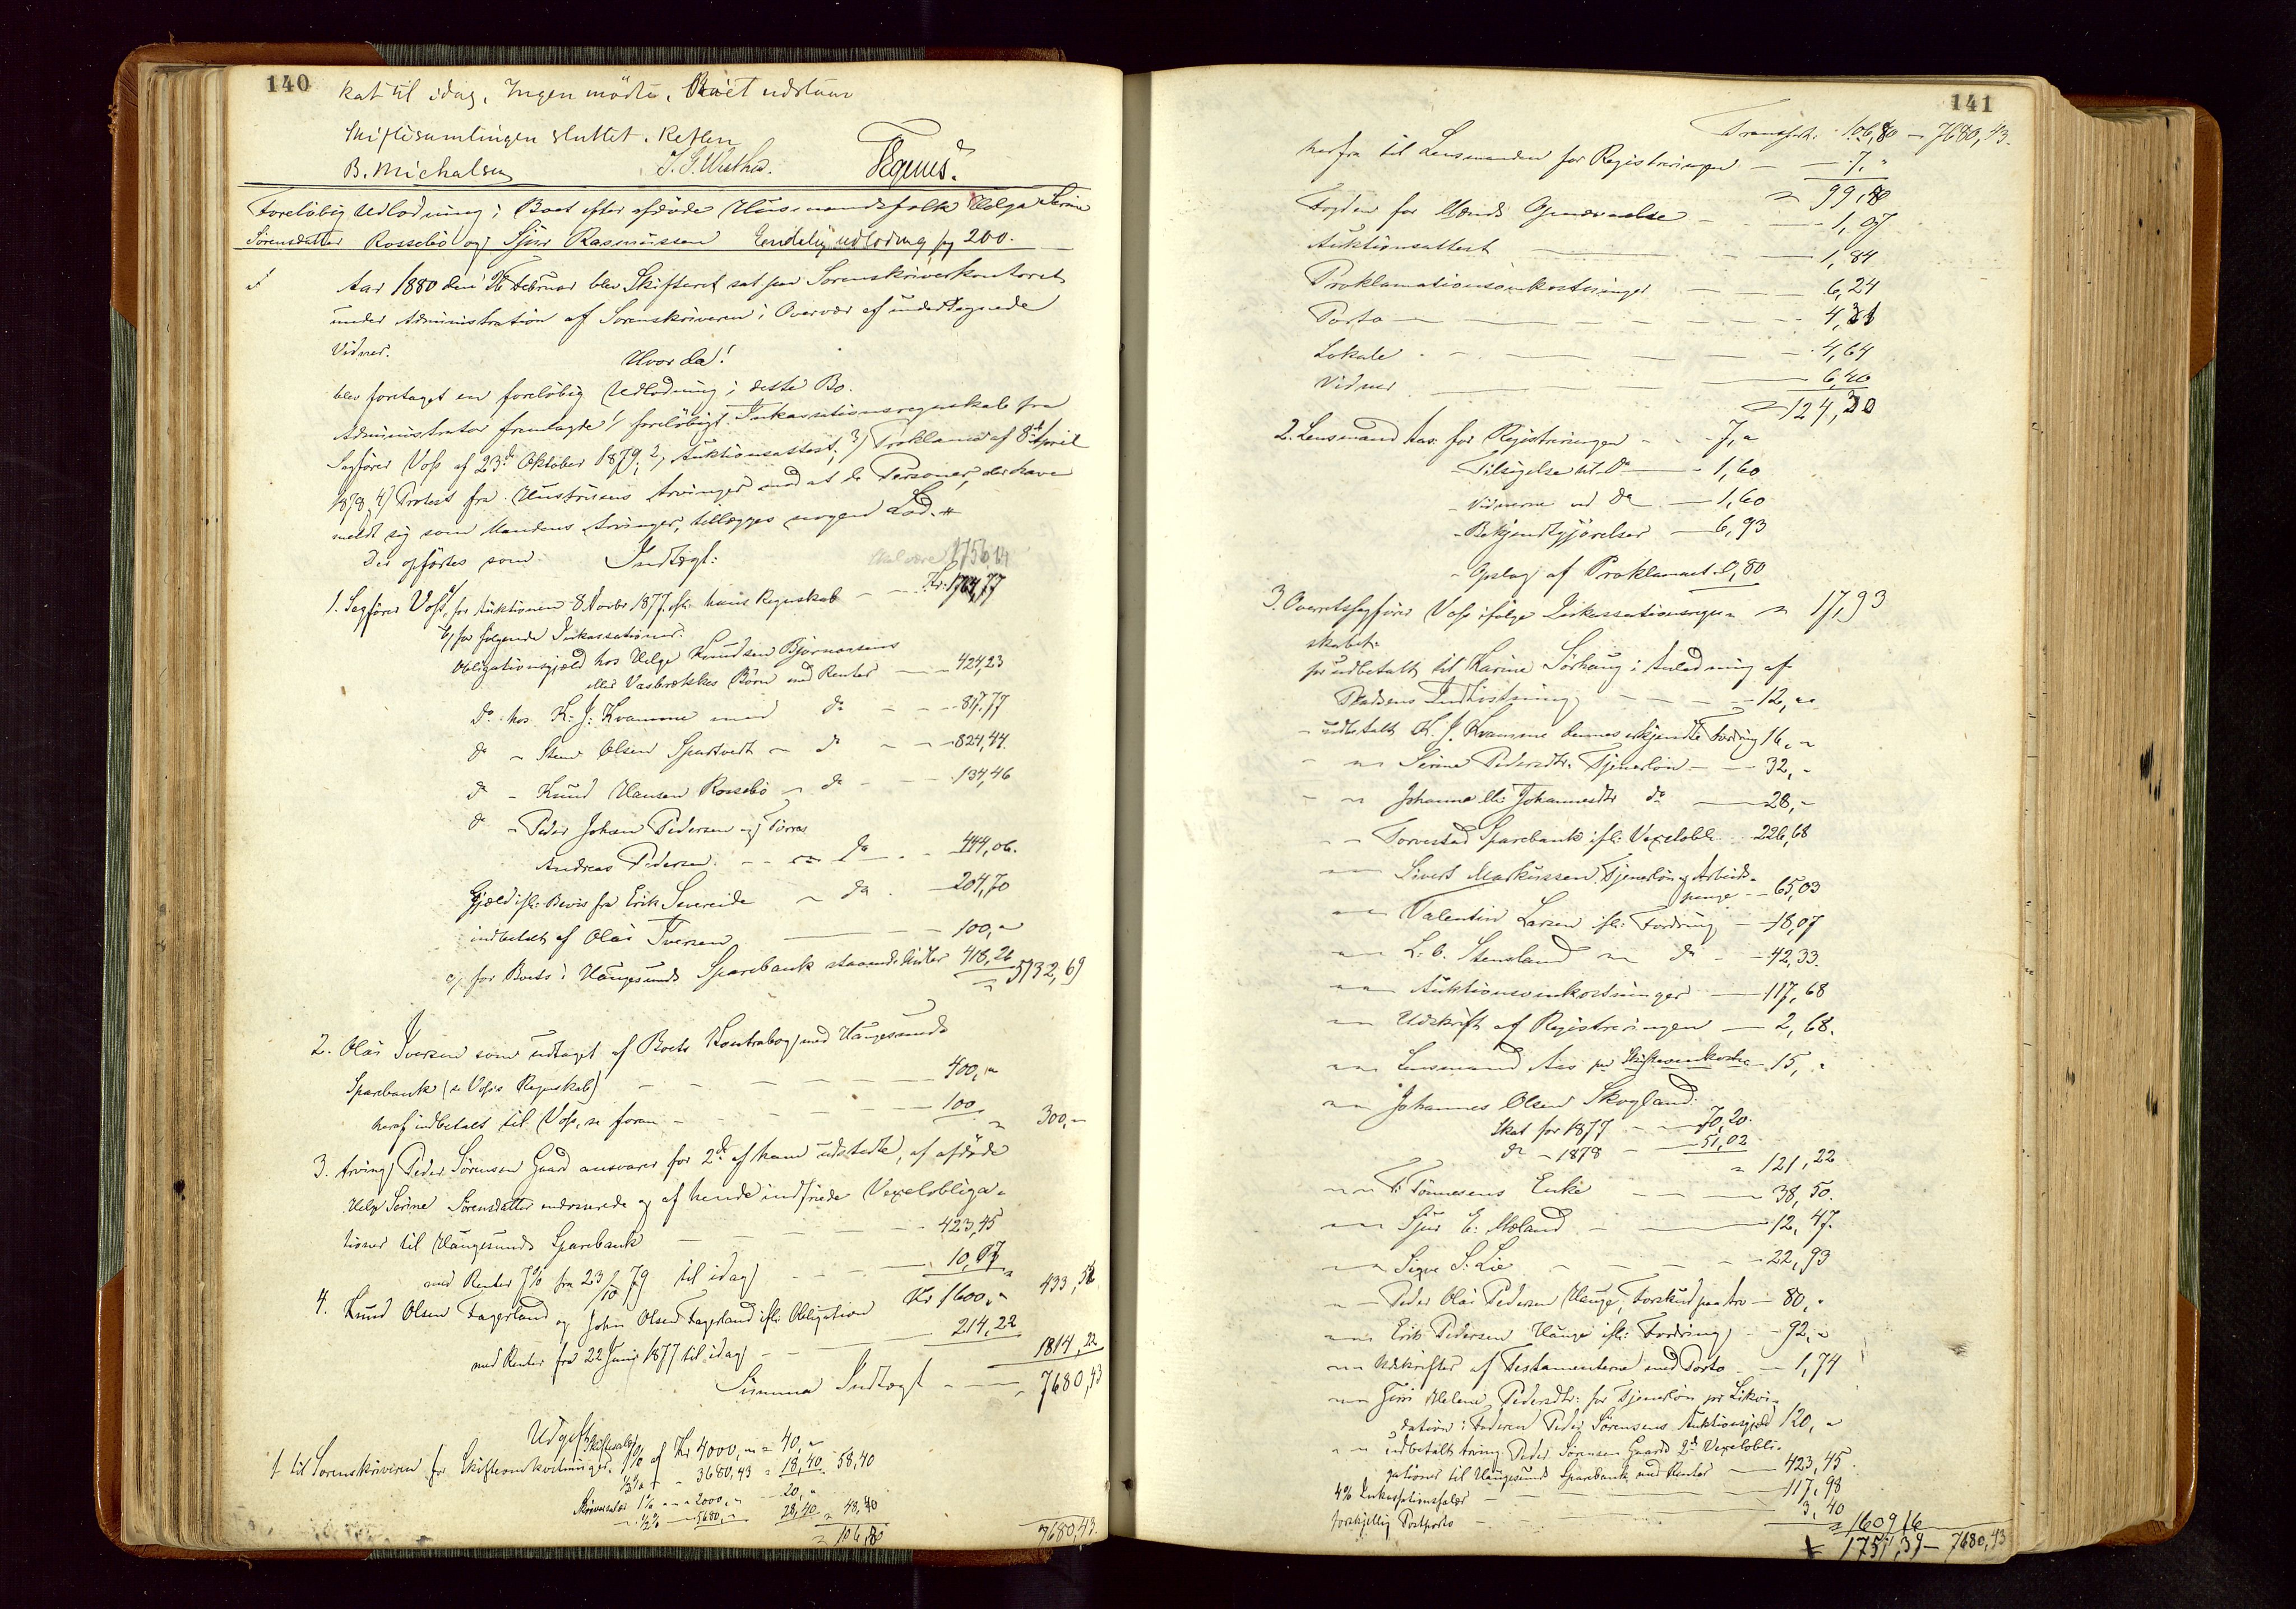 140
kat til idag. Ingen mødte. Boet udstaar
Skiftesamlingen sluttet. Retten
B. Michalsen
Foreløbig Udlodning i Boet efter afdøde Husmandsfolk Helga Serine
Sørensdatter Rossebø og Sjur Rasmussen Endelig udlodning pag 200.
Aar 1880 den 26 Februar blev Skifteret sat paa Sorenskriverkontoret
under Administration af Sorenskriveren i Overvær af undertegnede
Vidner.
Hvor da!
blev foretaget en foreløbig Udlodning i dette Bo.
Administrator fremlagde 1) foreløbigt Inkassationsregnskab fra
Sagfører Voss af 23de Oktober 1879, 2) Auktionsattest, 3) Proklama af 8de April
1878 4) Protest fra Hustruens Arvinger mod at de Personer, der have
meldt sig som Mandens Arvinger, tillægges nogen Lod.
Der opførtes som Indtægt:
Skal være 1756,14
1. Sagfører Voss, a) for Auktionen 8 Novbr 1877 ifl. hans Regnskab - - Kr. 1764,77
b) for følgende Inkassationer:
Obligationsgjæld hos Helge Knudsen Bjørnaasens
eller Vasbrækkes Børn med Renter - 424,23
do hos K. J. Kvamme med do - - 817,77
do - Sten Olsen Spartvedt - do - - 824,44
do - Knud Hansen Rossebø - do - - 134,46
do - Peder Johan Pedersen og Tørres
Andreas Pedersen - - do - 444,06.
Gjæld ifl. Bevis fra Erik Sevreide - do - 204,70
indbetalt af Olai Iversen - 100,-
c) for Boets i Haugesunds Sparebank staaende Midler 418,26 - 5132,69
2. Olai Iversen som udtaget af Boets Kontrabog med Haugesunds
Sparebank (se Voss's Regnskab) - - - 400,-
heraf indbetalt til Voss, se foran - - - 100, - 300,-
3. Arving Peder Sørensen Gaard ansvarer for 2de af ham udstedte, af afdøde
Helge Serine Sørensdatter endosserede og af hende indfriede Vexelobliga-
tioner til Haugesunds Sparebank - - - 423,45
med Renter 7% fra 23/10 79 til idag - - - 10,07 - 433,52
4. Knud Olsen Fagerland og John Olsen Fagerland ifl. Obligation Kr 1600,-
med Renter fra 22 Juni 1877 til idag - - 214,22 1814,22
Summa Indtægt - - 7680,43
Udgift:
1. til Sorenskriveren for Skifteomkostninger. 1% af Kr 4000,- = 40,-
1/2% - - 3680,43 = 18,40. 58,40
Skriversalær 1% - - 2000,- - 20,-
- 1/2% - 5680,- 28,40 - 48,40
106,80 7680,43.
141
Transport: 106,80 - 7680,43.
herfra til Lensmanden for Registreringen - - 7,-
- 99,80
Fogden for Mænds Opnævnelse - - 1,07
Auktionsattest - - 1,84
Proklamationsomkostninger - - 6,24
Porto - - - 4,31
Lokale - - - 4,64
Vidner - - 6,40
- 124,30
2. Lensmand Aas for Registreringen - - 7,-
- Tilsigelse til do - 1,60
- Vidnerne ved do - 1,60
- Bekjendtgjørelser - 6,93
- Opslag af Proklamaet 0,80
3. Overretssagfører Voss ifølge Inkassationsregn- - 17,93
skabet:
for udbetalt til Karine Sørhaug i Anledning af
- - - 12,-
- udbetalt K. J. Kvamme dennes erkjendte Fordring 16,-
- - Serine Pedersdtr. Tjenerløn - - 32,-
- - Johanne Johannesdtr do - 28,-
- - Torvestad Sparebank ifl. Vexelobl. - 226,68
- - Sivert Markussen, Tjenerløn og Arbeids-
penge - 65,03
- - Valentin Larsen ifl. Fordring - 18,07
- - L. O. Stensland - do - 42,33.
- - Auktionsomkostninger - 117,68
- - Udskrift af Registreringen - 2,68.
- - Lensmand Aas for Skifteomkostn - 15,-
- - Johannes Olsen Skogland:
Skat for 1877 - - 70,20.
do - 1878 - 51,02
- 121,22
- - T. Tønnesens Enke - - 38,50.
- - Sjur E. Mæland - - 12,47.
- - Sigve S. Lie - - - 22,93
- - Peder Olai Pedersen Hauge, Forskud paa Arv - 80,-
- - Erik Pedersen Hauge ifl. Fordring - - 92,-
- - Udskrifter af Testamenterne med Porto - 1,74
- - Helene Pedersdtr. for Tjenerløn pr Likvi-
dation i Faderen Peder Sørensens Auktionsgjæld 120,-
- - indbetalt Arving Peder Sørensen Gaards 2de Vexelobli-
gationer til Haugesunds Sparebank med Renter - 423,45.
4% Inkassationssalær - - - 117,98
forskjellig Postporto - - 3,40
- 1609,16
1751,39 - 7680,43